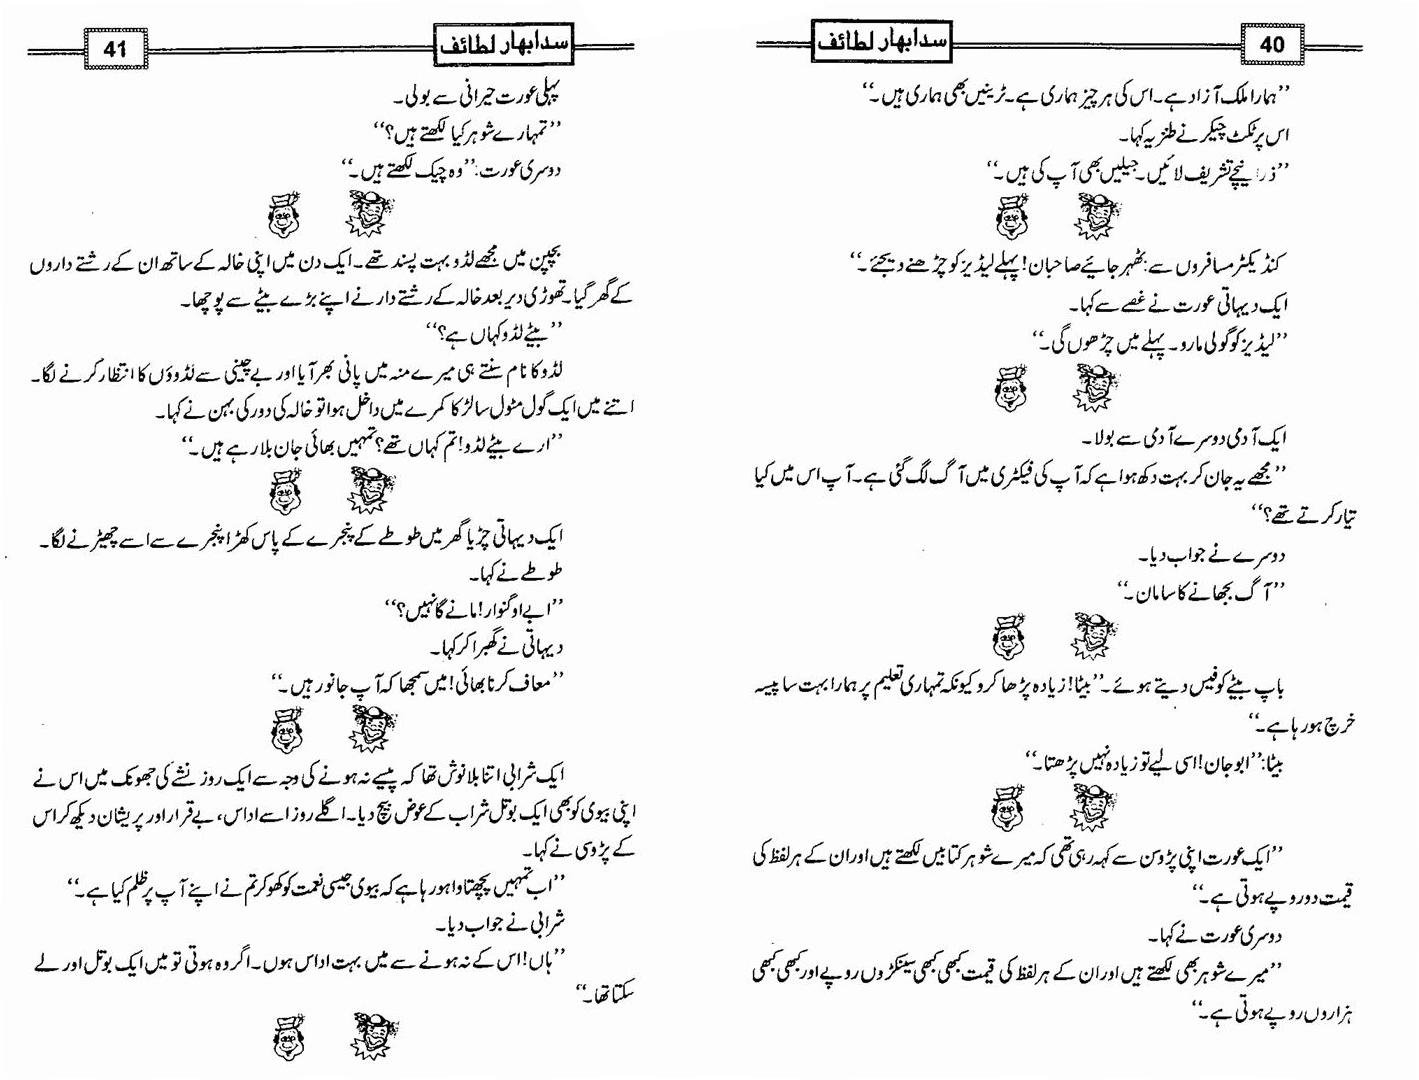 40
سدابہار لطائف
’’ہمارا ملک آزاد ہے۔ اس کی ہر چیز ہماری ہے۔ ٹرینیں بھی ہماری ہیں۔‘‘
اس پر ٹکٹ چیکر نے طنزیہ کہا۔
’’ذرا نیچے تشریف لائیں۔ جیلیں بھی آپ کی ہیں۔‘‘
کنڈیکٹر مسافروں سے: ٹھہر جایئے صاحبان! پہلے لیڈیز کو چڑھنے دیجئے۔‘‘
ایک دیہاتی عورت نے غصے سے کہا۔
’’لیڈیز کو گولی مارو۔ پہلے میں چڑھوں گی۔‘‘
ایک آدمی دوسرے آدمی سے بولا۔
’’مجھے یہ جان کر بہت دکھ ہوا ہے کہ آپ کی فیکٹری میں آگ لگ گئی ہے۔ آپ اس میں کیا
تیار کرتے تھے؟‘‘
دوسرے نے جواب دیا۔
’’آگ بجھانے کا سامان۔‘‘
باپ بیٹے کو فیس دیتے ہوئے۔ ’’بیٹا! زیادہ پڑھا کرو کیونکہ تمہاری تعلیم پر ہمارا بہت سا پیسہ
خرچ ہو رہا ہے۔‘‘
بیٹا: ’’ابو جان! اسی لیے تو زیادہ نہیں پڑھتا۔‘‘
’’ایک عورت اپنی پڑوسن سے کہہ رہی تھی کہ میرے شوہر کتابیں لکھتے ہیں اور ان کے ہر لفظ کی
قیمت دو روپے ہوتی ہے۔‘‘
دوسری عورت نے کہا۔
’’میرے شوہر بھی لکھتے ہیں اور ان کے ہر لفظ کی قیمت کبھی کبھی سینکڑوں روپے اور کبھی کبھی
ہزاروں روپے ہوتی ہے۔‘‘
سدابہار لطائف
41
پہلی عورت حیرانی سے بولی۔
’’تمہارے شوہر کیا لکھتے ہیں؟‘‘
دوسری عورت: ’’وہ چیک لکھتے ہیں۔‘‘
بچپن میں مجھے لڈو بہت پسند تھے۔ ایک دن میں اپنی خالہ کے ساتھ ان کے رشتے داروں
کے گھر گیا۔ تھوڑی دیر بعد خالہ کے رشتے دار نے اپنے بڑے بیٹے سے پوچھا۔
’’بیٹے لڈو کہاں ہے؟‘‘
لڈو کا نام سنتے ہی میرے منہ میں پانی بھر آیا اور بے چینی سے لڈوؤں کا انتظار کرنے لگا۔
اتنے میں ایک گول مٹول سا لڑکا کمرے میں داخل ہوا تو خالہ کی دور کی بہن نے کہا۔
’’ارے بیٹے لڈو! تم کہاں تھے؟ تمہیں بھائی جان بلا رہے ہیں۔‘‘
ایک دیہاتی چڑیا گھر میں طوطے کے پنجرے کے پاس کھڑا پنجرے سے اسے چھیڑنے لگا۔
طوطے نے کہا۔
’’ابے او گنوار! مانے گا نہیں؟‘‘
دیہاتی نے گھبرا کر کہا۔
’’معاف کرنا بھائی! میں سمجھا کہ آپ جانور ہیں۔‘‘
ایک شرابی اتنا بلا نوش تھا کہ پیسے نہ ہونے کی وجہ سے ایک روز نشے کی جھونک میں اس نے
اپنی بیوی کو بھی ایک بوتل شراب کے عوض بیچ دیا۔ اگلے روز اسے اداس، بے قرار اور پریشان دیکھ کر اس
کے پڑوسی نے کہا۔
’’اب تمہیں پچھتاوا ہو رہا ہے کہ بیوی جیسی نعمت کو کھو کر تم نے اپنے آپ پر ظلم کیا ہے۔‘‘
شرابی نے جواب دیا۔
’’ہاں! اس کے نہ ہونے سے میں بہت اداس ہوں۔ اگر وہ ہوتی تو میں ایک بوتل اور لے
سکتا تھا۔‘‘